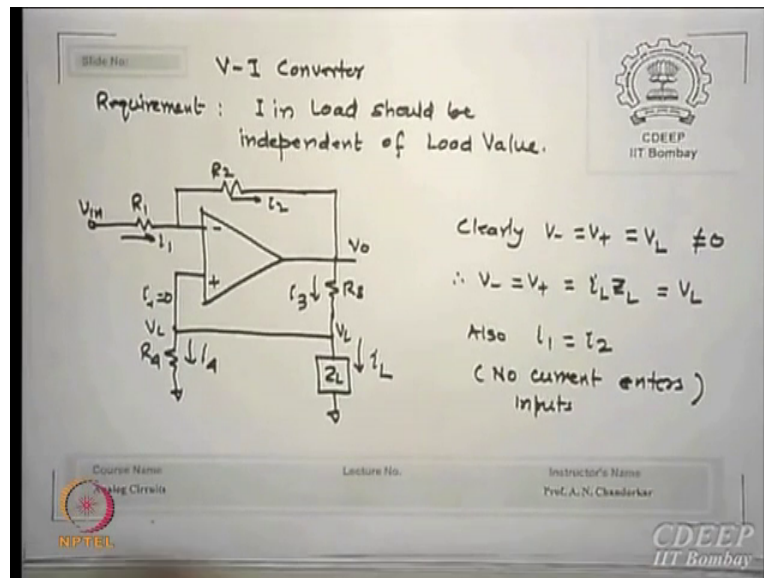 Slide No:
V-I Converter
Requirement : I in Load should be
independent of Load Value.
CDEEP
IIT Bombay
R2
i2
VIN
R1
i1
-
+
Vo
i+=0
i3
R3
VL
VL
R4
i4
ZL
iL
Clearly V- = V+ = VL ≠0
∴ V- = V+ = iL ZL = VL
Also i1 = i2
(No current enters)
inputs
Course Name
Analog Circuits
Lecture No.
Instructor's Name
Prof. A. N. Chandorkar
NPTEL
CDEEP
IIT Bombay